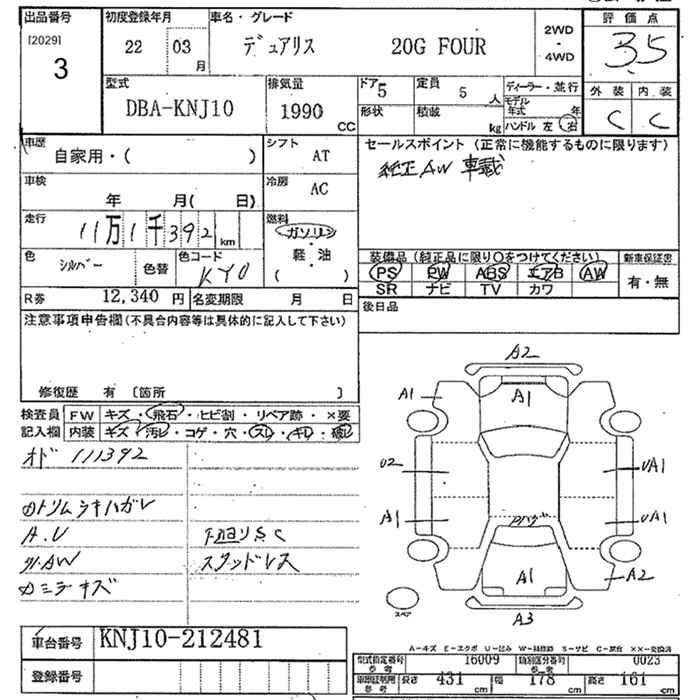 出品番号 初度登録年月 車名・グレード 2WD・4WD 評価点
[2029] 3 22 03 月 デュアリス 20G FOUR 3.5
型式 排気量 ドア 5 定員 5 人 ディーラー・並行 外装 内装
DBA-KNJ10 1990 CC 形状 積載 kg モデル年式 年 ハンドル 左 右 C C
車歴 自家用・( ) シフト AT セールスポイント (正常に機能するものに限ります)
純正AW 車載
車検 年 月( 日) 冷房 AC
走行 11万1千392 km 燃料 ガソリン・軽・油 ( )
色 シルバー 色替 色コード KY0
装備品 (純正品に限り○をつけてください) 新車保証書
PS PW ABS エアB AW 有・無
SR ナビ TV カワ
R券 12,340 円 名変期限 月 日 後日品
注意事項申告欄(不具合内容等は具体的に記入して下さい)
修復歴 有 〔箇所 〕
検査員 FW キズ・飛石・ヒビ割・リペア跡・×要
記入欄 内装 キズ・汚レ・コゲ・穴・スレ・キレ・破レ
オド 111392
スタッドレス
A2
A1 A1
U2 UA1
A1 UA1
A1 A2
A3
スペア
車台番号 KNJ10-212481
登録番号
A-キズ E-エクボ U-凹み
型式指定番号 参考 16009 類別区分番号 参考 0023
参考 長さ 431 cm 幅 178 cm 高さ 161 cm